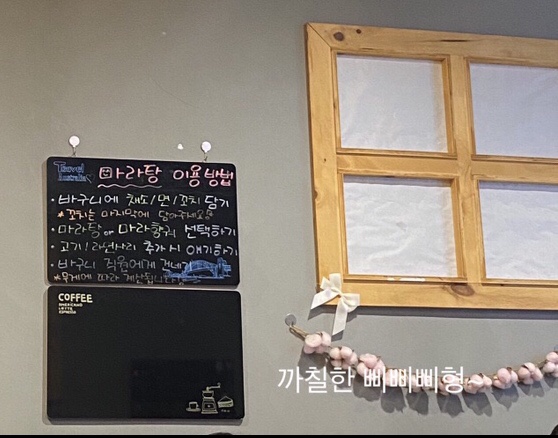 Travel
Australia
마라탕 이용방법
• 바구니에 채소/면/꼬치 담기
*꼬치는 마지막에 담아주세요
• 마라탕 or 마라샹궈 선택하기
• 고기/라면사리 추가시 얘기하기
• 바구니 직원에게 건네기
*무게에 따라 계산됩니다!
COFFEE
AMERICANO
LATTE
ESPRESSO
까칠한 삐삐삐형